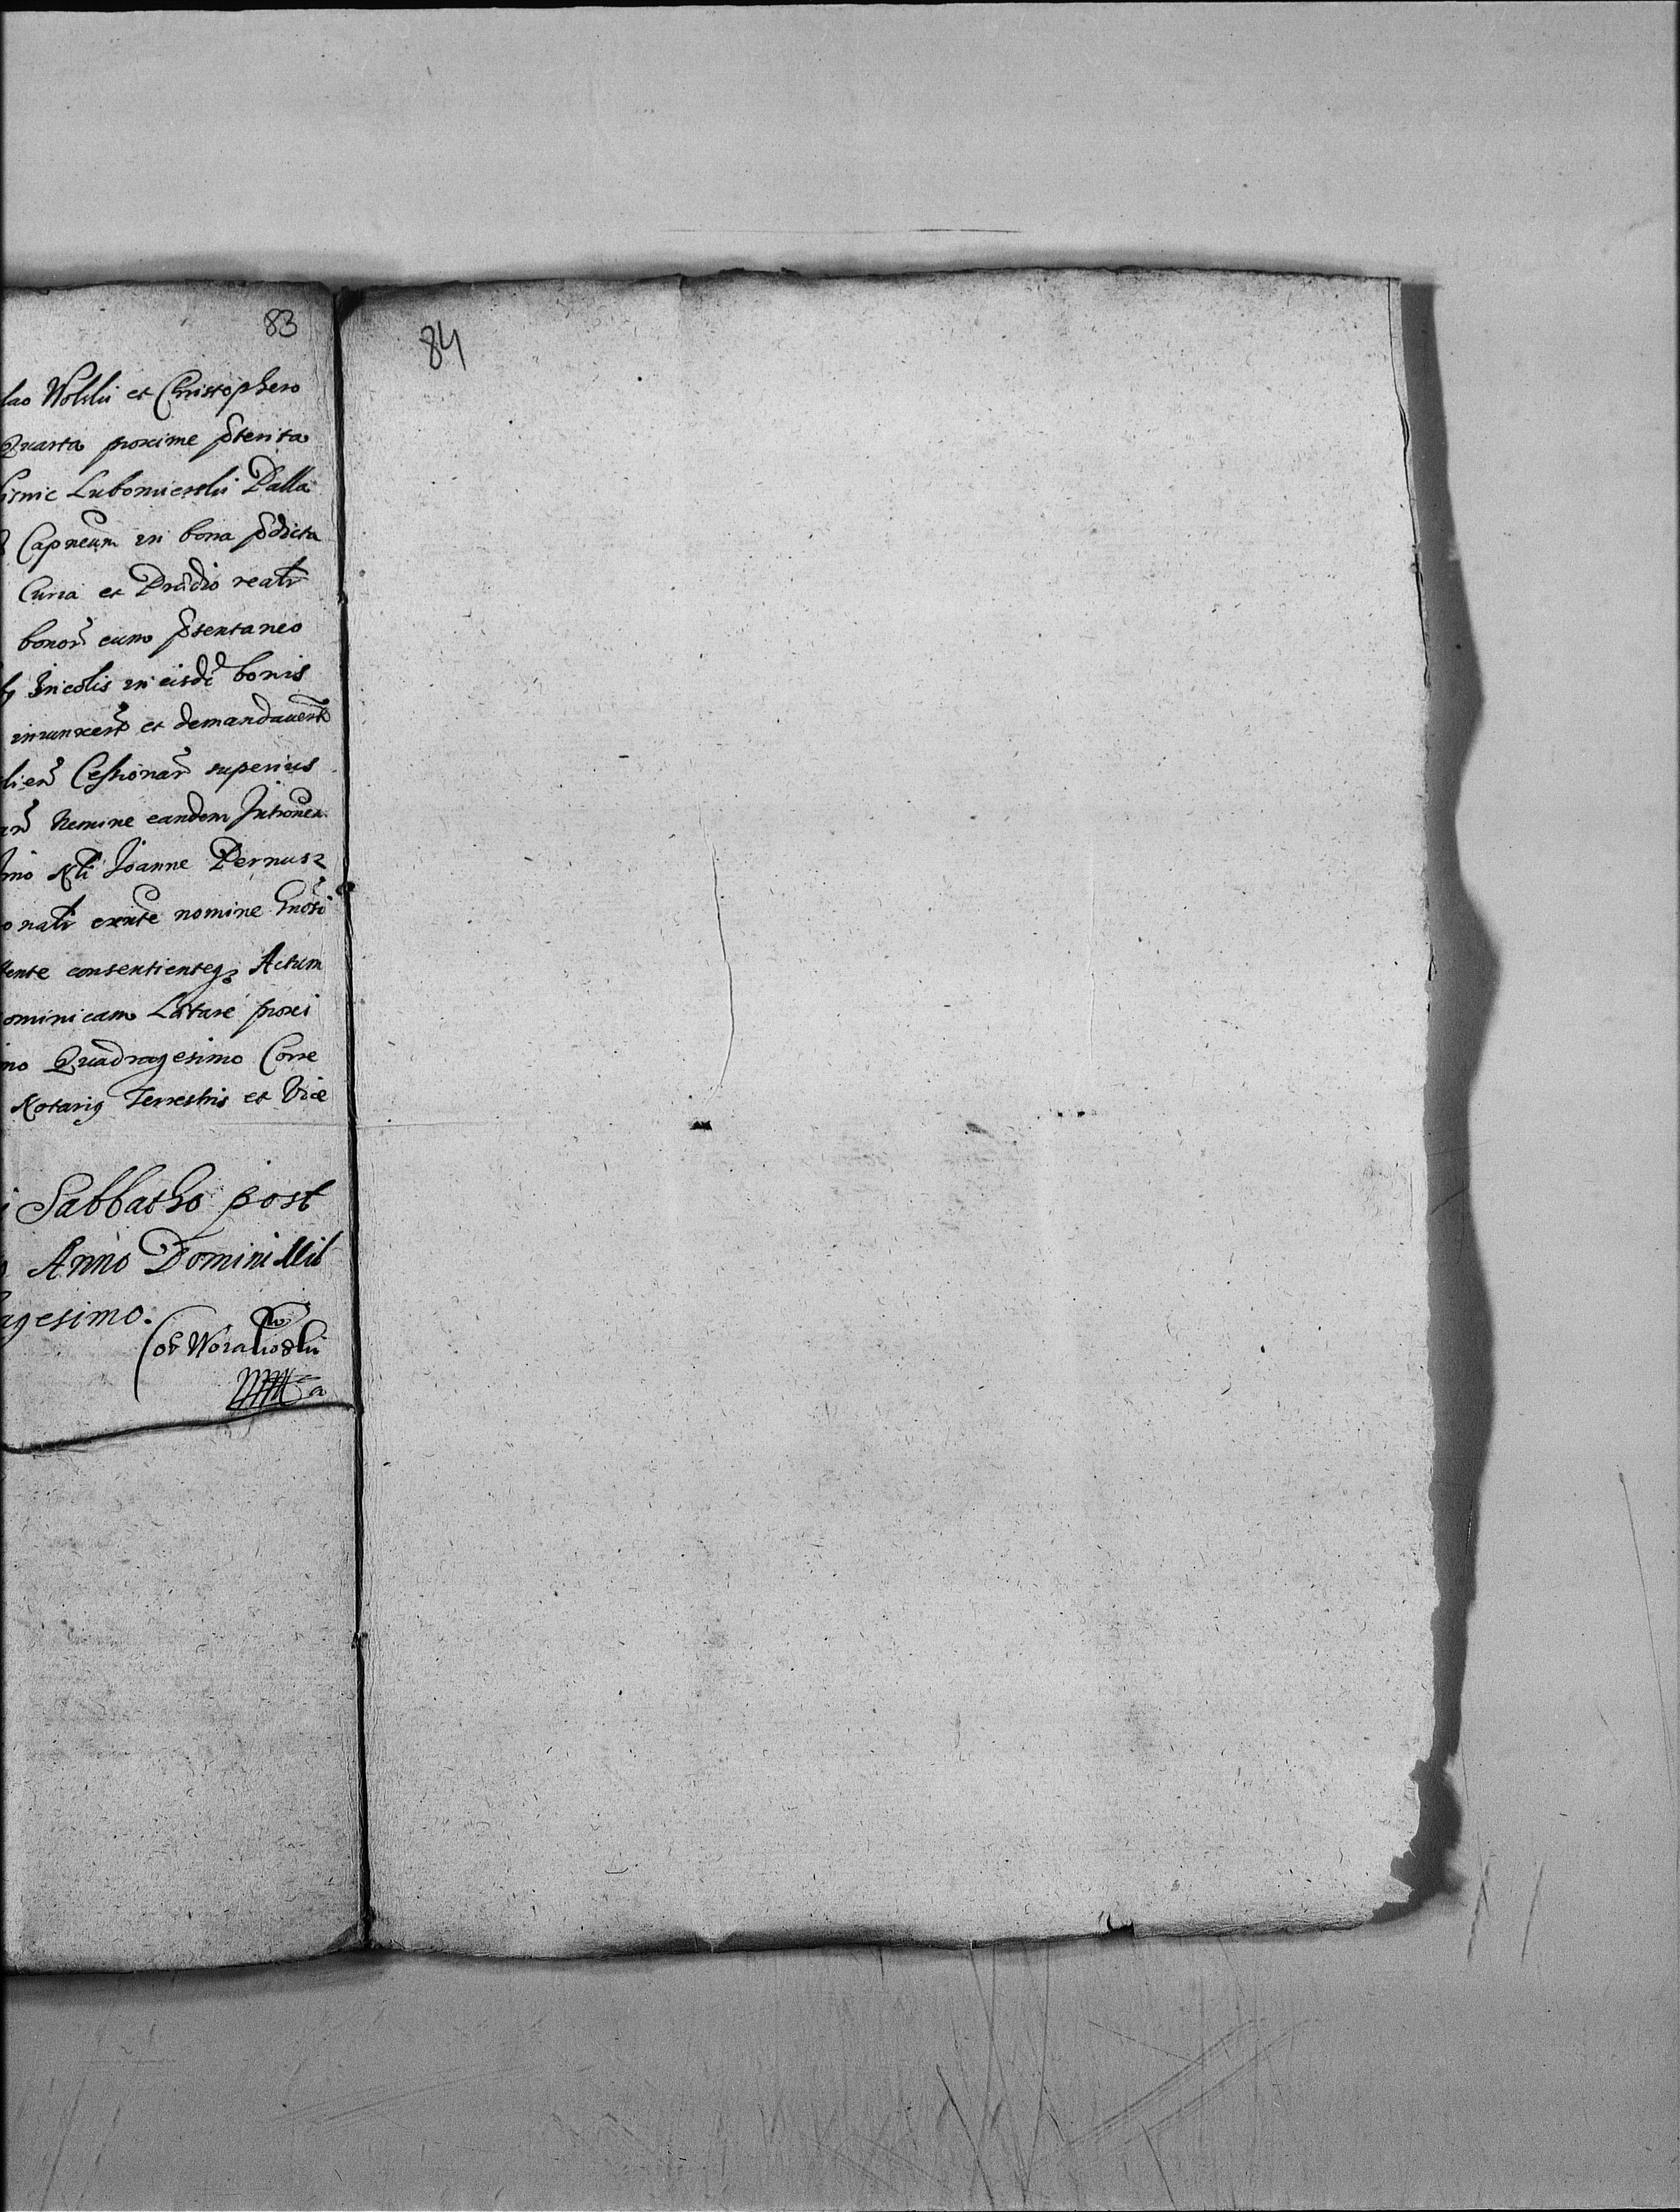 83
lao Wolski et Christophero
Quarta proxime pterita
Lubomierski Palla
Capneum in bona pdicta
Curia et Prædio realr
bonor eum psentaneo
Incolis in eisdē bonis
iniunxert et demandavert
Cessionar superius
Nemine eandem Intronen
Ntī Joanne Pernusz
onalr exnte nomine Gnosi
tente consentienteqз Actum
ominicam Lætare proxi
mo Quadragesimo Corre
Notarig Terrestris et Vice
Sabbatho post
Anno Domini Mil
agesimo.
84